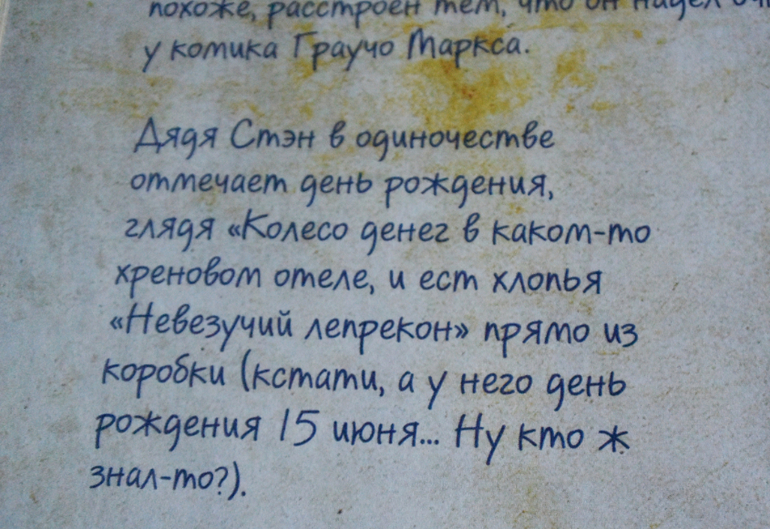 похоже, расстроен тем, что он надел
у комика Граучо Маркса.
Дядя Стэн в одиночестве
отмечает день рождения,
глядя «Колесо денег в каком-то
хреновом отеле, и ест хлопья
«Невезучий лепрекон» прямо из
коробки (кстати, а у него день
рождения 15 июня... Ну кто ж
знал-то?).